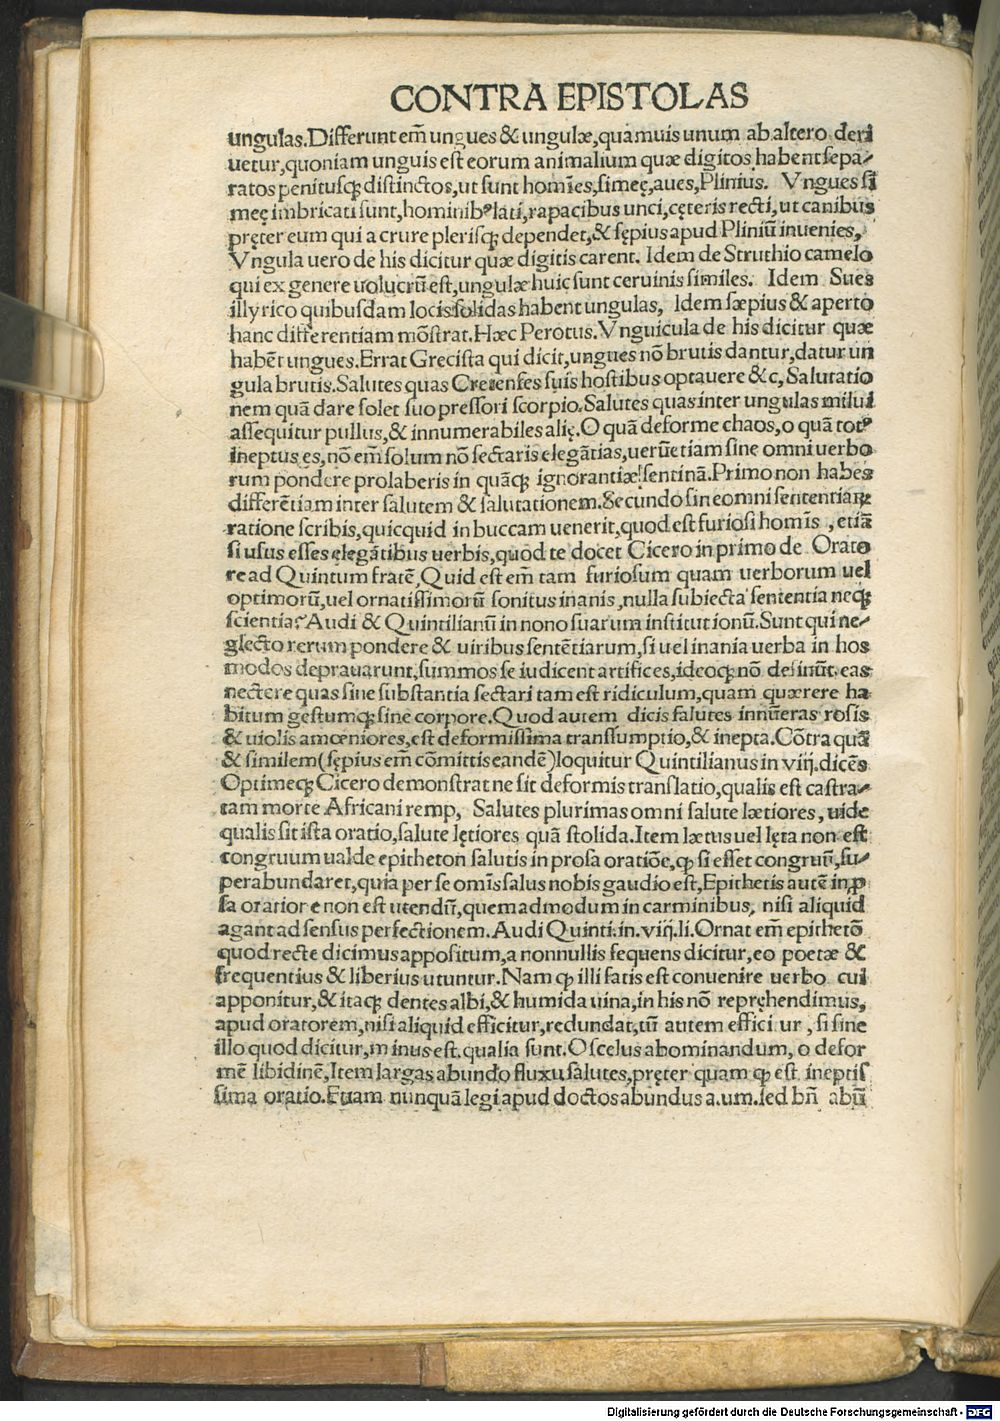 CONTRA EPISTOLAS
ungulas.Differunt em̄ ungues & ungulæ,quamuis unum ab altero deri
uetur,quoniam unguis est eorum animalium quæ digitos habent sepa⸗
ratos penitusq; distinctos,ut sunt homīes,simeę,aues,Plinius. Vngues si
meę imbricati sunt,hominibꝰ lati,rapacibus unci,cęteris recti,ut canibus
pręter eum qui a crure plerisq; dependet,& sępius apud Pliniū inuenies,
Vngula uero de his dicitur quæ digitis carent. Idem de Struthio camelo
qui ex genere uolucrū est,ungulæ huic sunt ceruinis similes. Idem Sues
illyrico quibusdam locis solidas habent ungulas, Idem sæpius & aperto
hanc differentiam mōstrat.Hæc Perotus.Vnguicula de his dicitur quæ
habēt ungues.Errat Grecista qui dicit,ungues nō brutis dantur,datur un
gula brutis.Salutes quas Cretenses suis hostibus optauere &c,Salutatio
nem quā dare solet suo pressori scorpio.Salutes quas inter ungulas milui
assequitur pullus,& innumerabiles alię.O quā deforme chaos,o quā totꝰ
ineptus es,nō em̄ solum nō sectaris elegātias,uerūetiam sine omni uerbo
rum pondere prolaberis in quāq; ignorantiæ sentinā.Primo non habes
differētiam inter salutem & salutationem.Secundo sine omni sententiarꝝ
ratione scribis,quicquid in buccam uenerit,quod est furiosi homīs ,etiā
si usus esses elegātibus uerbis,quod te docet Cicero in primo de Orato
re ad Quintum fratē,Quid est em̄ tam furiosum quam uerborum uel
optimorū,uel ornatissimorū sonitus inanis,nulla subiecta sententia neq;
scientia?Audi & Quintilianū in nono suarum institutionū.Sunt qui ne⸗
glecto rerum pondere & uiribus sentētiarum,si uel inania uerba in hos
modos deprauarunt,summos se iudicent artifices,ideoq; nō desinūt eas
nectere quas sine substantia sectari tam est ridiculum,quam quærere ha
bitum gestumq; sine corpore.Quod autem dicis salutes innūeras rosis
& uiolis amœniores,est deformissima transsumptio,& inepta.Cōtra quā
& similem(sępius em̄ cōmittis eandē)loquitur Quintilianus in viij.dicēs
Optimeq; Cicero demonstrat ne sit deformis translatio,qualis est castra⸗
tam morte Africani remp, Salutes plurimas omni salute lætiores,uide
qualis sit ista oratio,salute lętiores quā stolida.Item lætus uel lęta non est
congruum ualde epitheton salutis in prosa oratiōe,ꝙ si esset congruū,su⸗
perabundaret,quia per se omīs salus nobis gaudio est,Epithetis autē in ꝓ
sa oratione non est utendū,quemadmodum in carminibus, nisi aliquid
agant ad sensus perfectionem.Audi Quinti.in.viij.li.Ornat em̄ epithetō
quod recte dicimus appositum,a nonnullis sequens dicitur,eo poetæ &
frequentius & liberius utuntur.Nam ꝙ illi satis est conuenire uerbo cui
apponitur,& itaq; dentes albi,& humida uina,in his nō repręhendimus,
apud oratorem,nisi aliquid efficitur,redundat,tū autem effici ur ,si sine
illo quod dicitur,minus est.qualia sunt.O scelus abominandum,o defor
mē libidinē,Item largas abundo fluxu salutes,pręter quam ꝙ est ineptis
sima oratio.Etiam nunquā legi apud doctos abundus a.um.sed bn̄ abū